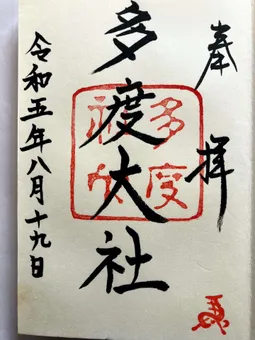 奉拝
多度大社
多度
大社
令和五年八月十九日